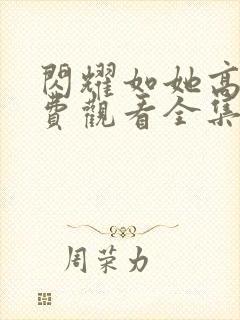 閃耀如她高
費觀看全集
周荣力